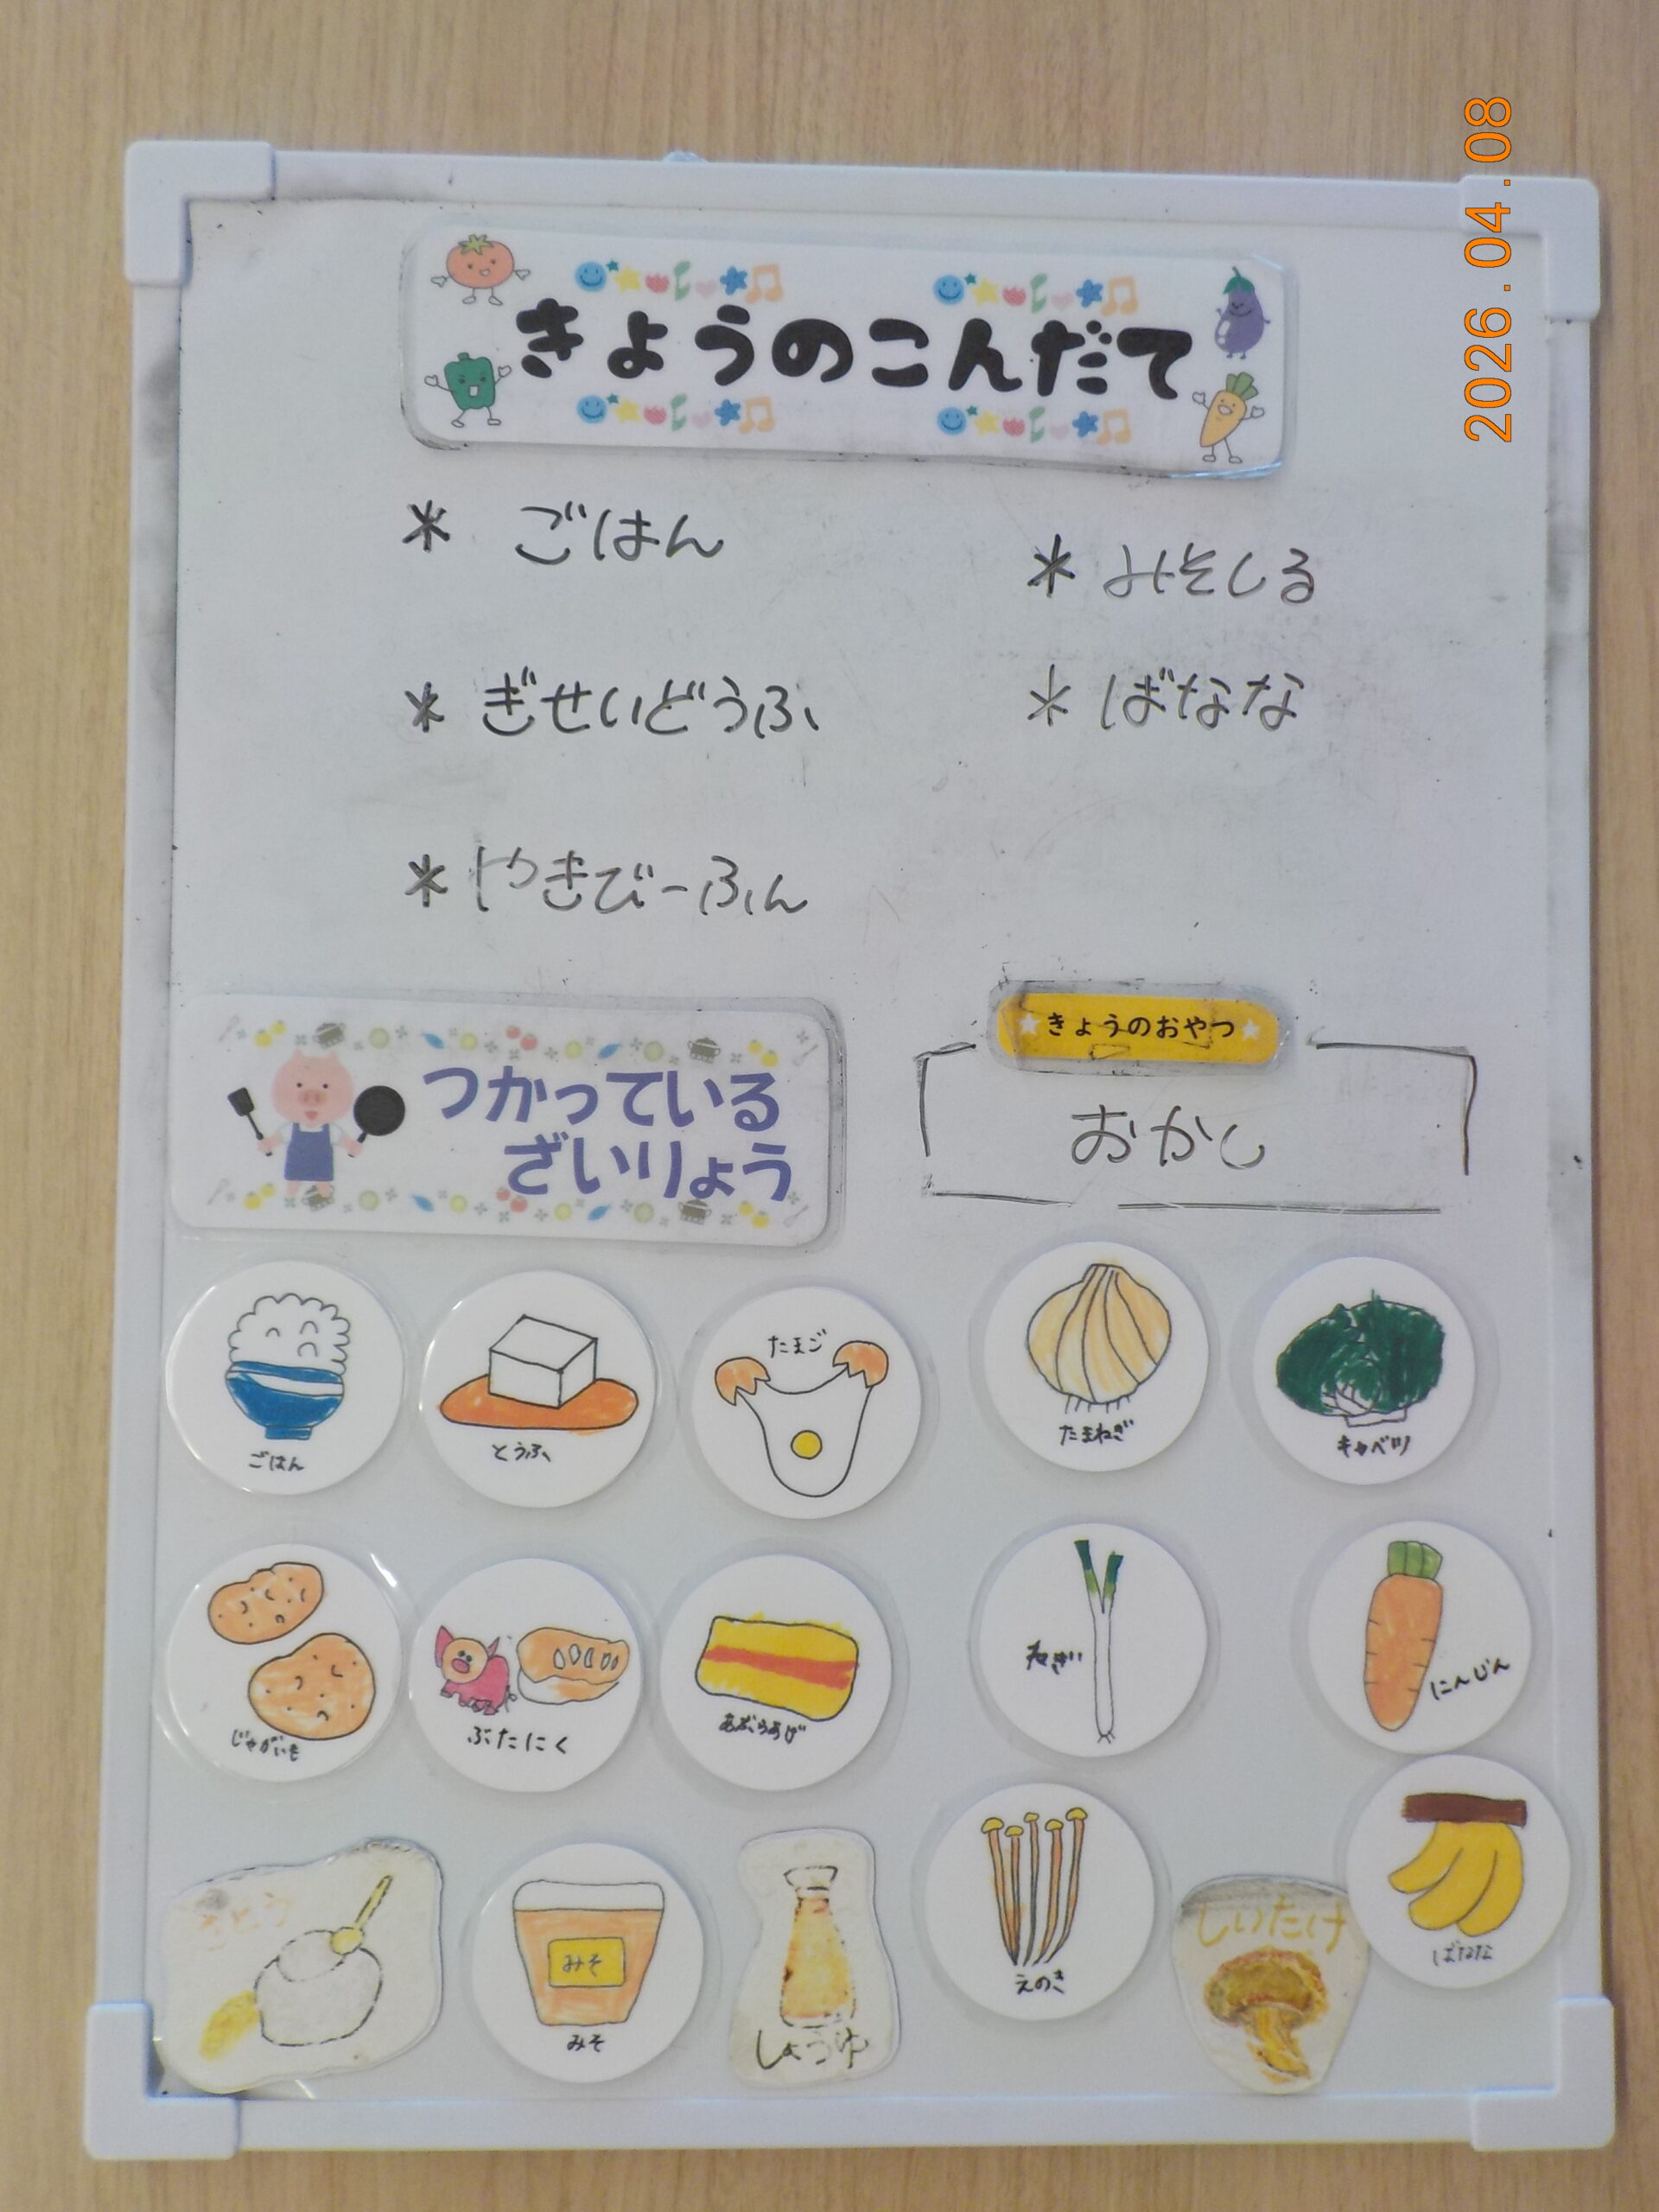 2026.04.08
きょうのこんだて
* ごはん
* ぎせいどうふ
* やきびーふん
* みそしる
* ばなな
つかっている
ざいりょう
きょうのおやつ
おかし
ごはん
とうふ
たまご
たまねぎ
キャベツ
じゃがいも
ぶたにく
あぶらあげ
ねぎ
にんじん
さとう
みそ
みそ
しょうゆ
えのき
しいたけ
ばなな